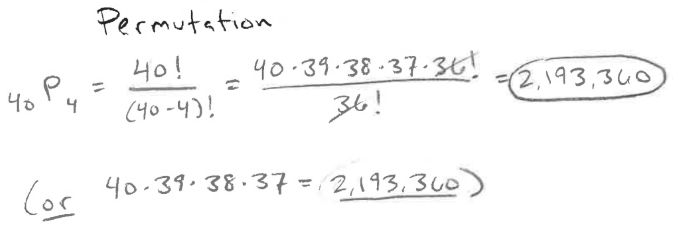 Permutation
₄₀P₄ = 40!/(40-4)! = 40·39·38·37·36!/36! = 2,193,360
(or 40·39·38·37 = 2,193,360)